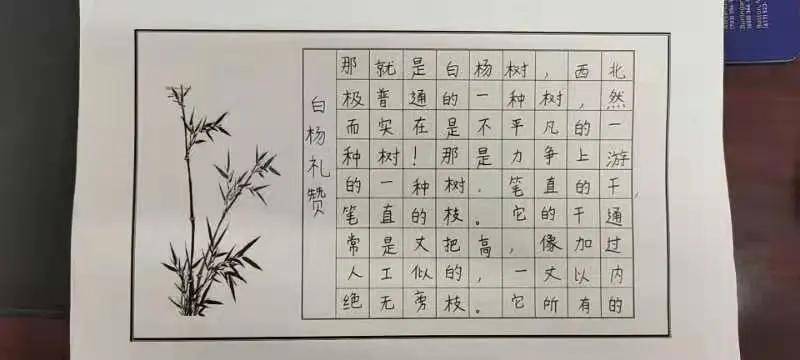 白杨礼赞
那就是白杨树，西北
极普通的一种树，然
而实在是不平凡的一
种树！那是力争上游
的一种树，笔直的干，
笔直的枝。它的干通
常是丈把高，像加过
人工似的，一丈以内
绝无旁枝。它所有的